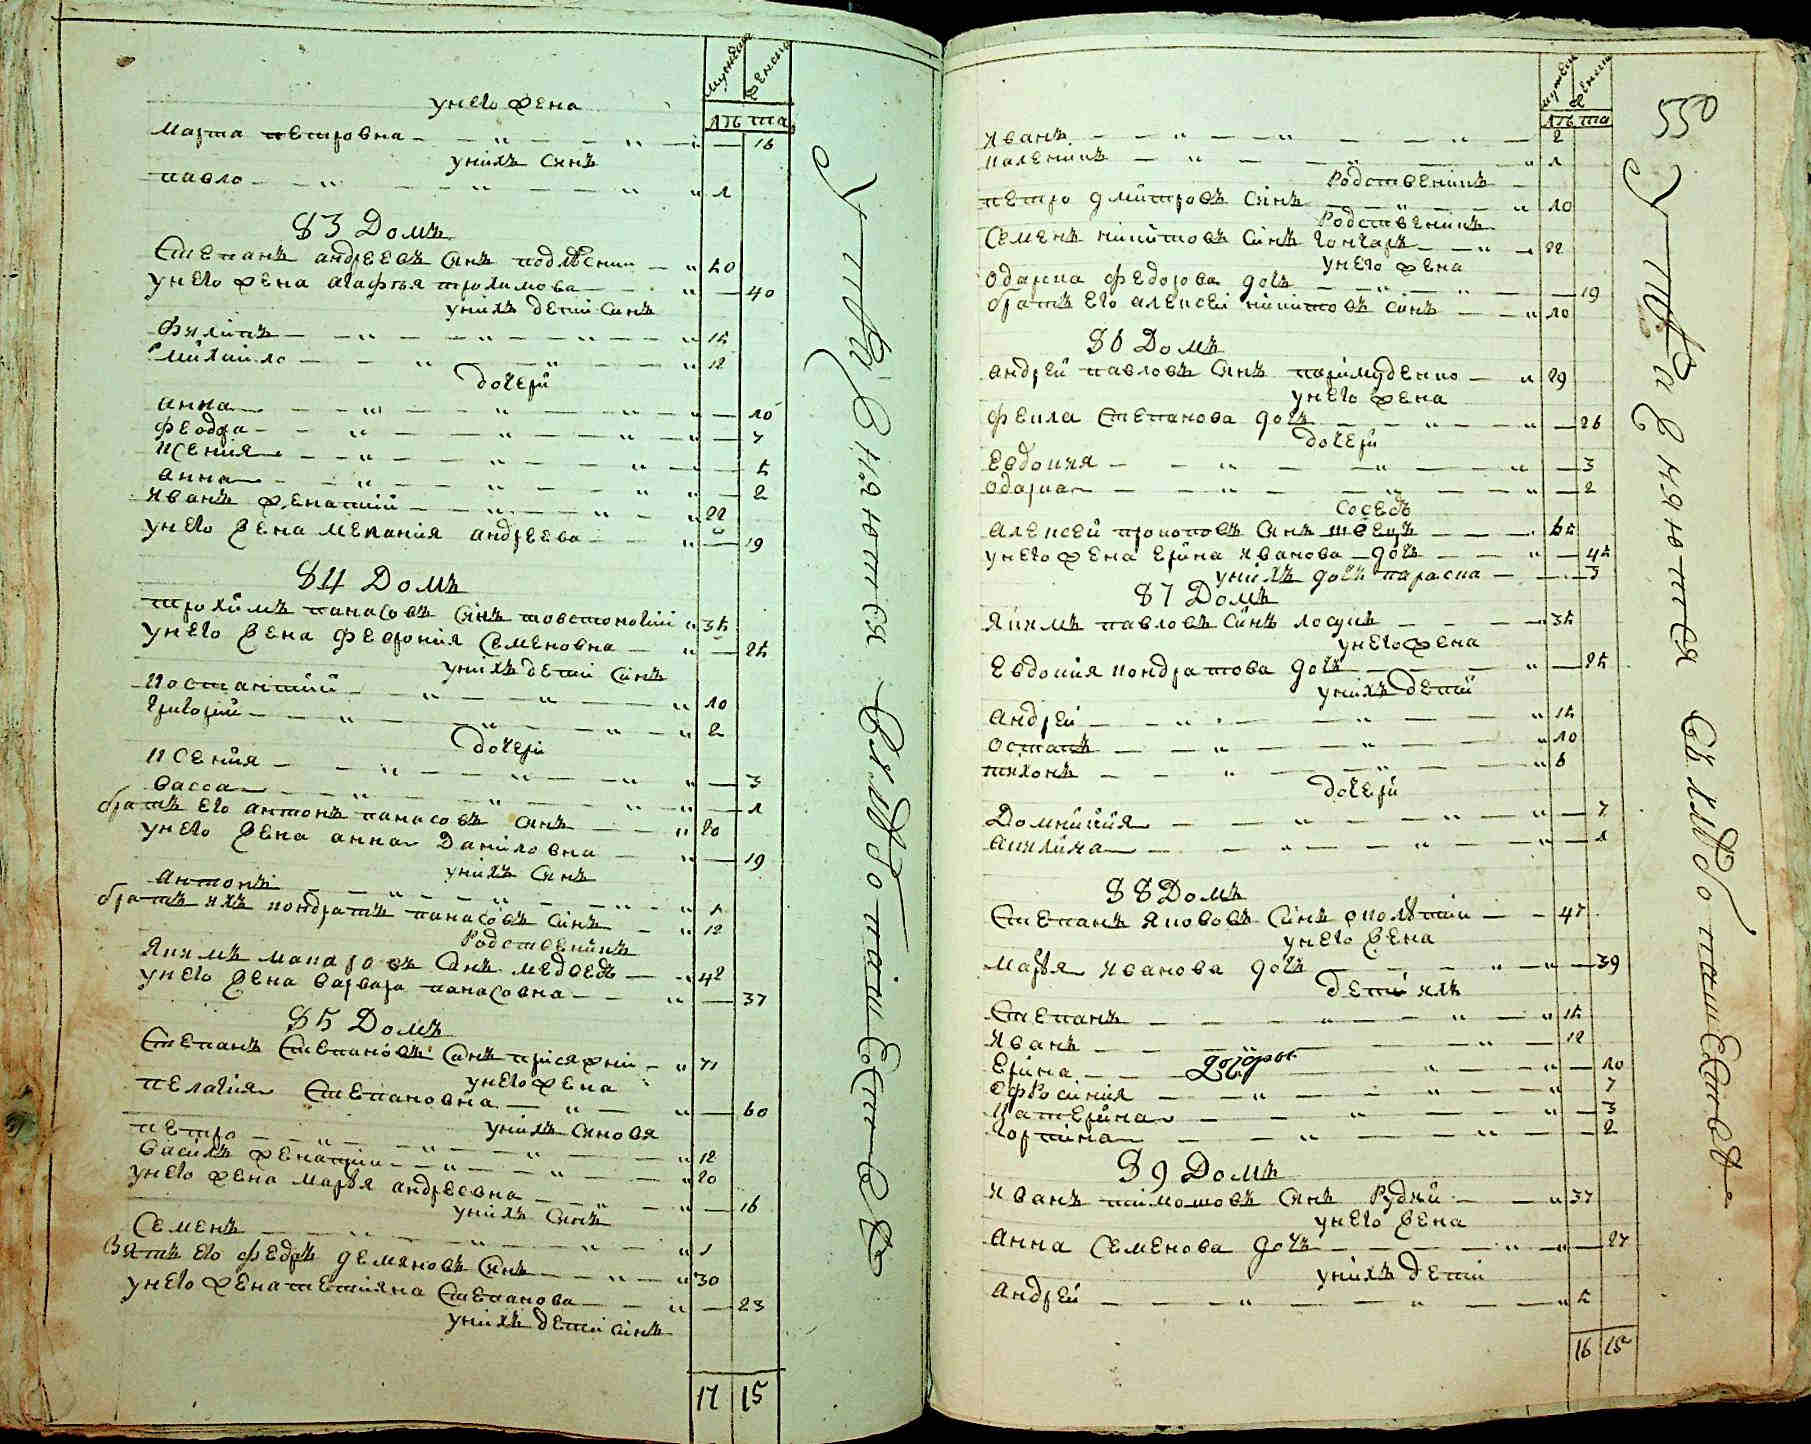 мужеска женска
лѣ та
у него жена
марта петровна 16
у нихъ синъ
павло 1
83 Домъ
Степанъ андреевъ синъ подлѣсний 50
у него жена агафья трохимова 40
у нихъ дети синъ
Филипъ 15
михайло 12
дочери
анна 10
феодра 7
ксения 5
анна 2
иванъ женатий 22
у него жена мелания андреева 19
84 Домъ
трохимъ панасовъ синъ товстоногий 35
у него жена феврония семеновна 25
у нихъ дети синъ
костантий 10
григорий 2
дочери
ксения 3
васса 1
братъ его антонъ панасовъ синъ 20
у него жена анна Даниловна 19
у нихъ синъ
антонъ 1
братъ ихъ кондратъ панасовъ синъ 12
Родственикъ
якимъ макаровъ синъ медведь 42
у него жена варвара панасовна 37
85 Домъ
Степанъ Степановъ синъ присяжни 71
у него жена
пелагия Степановна 60
у нихъ синовя
петро 12
василь женатии 20
у него жена маря андреевна 16
у нихъ синъ
Семенъ 1
Зять его федоръ демяновъ синъ 30
у него жена тетияна Степанова 23
у нихъ дети синъ
17 15
мужеска женска
лѣ та
550
иванъ 2
каленикъ 1
Родственикъ
петро дмитровъ синъ 10
Родственикъ
Семенъ никитовъ синъ гончаръ 22
у него жена
Одарка Федорова дочь 19
братъ его алексей никитовъ синъ 10
86 Домъ
андрей павловъ синъ паримуденко 29
у него жена
фекла Степанова дочь 26
дочери
Евдокия 3
одарка 2
Соседъ
алексей прокоповъ синъ швецъ 65
у него жена Ерина иванова дочь 45
у нихъ дочь параска 3
87 Домъ
якимъ павловъ синъ лосукъ 35
у него жена
Евдокия кондратова дочь 25
у нихъ дети
андрей 15
остапъ 10
тихонъ 6
дочери
Домникия 7
акилина 1
88 Домъ
Степанъ якововъ синъ
у него жена
маря иванова дочь 39
дети ихъ
Степанъ 15
иванъ 12
дочери
Ерина 10
ефросиния 7
катерина 3
горпина 2
89 Домъ
иванъ пимоновъ синъ Рудий 37
у него жена
анна Семенова дочь 27
у нихъ дети
андрей 5
16 15